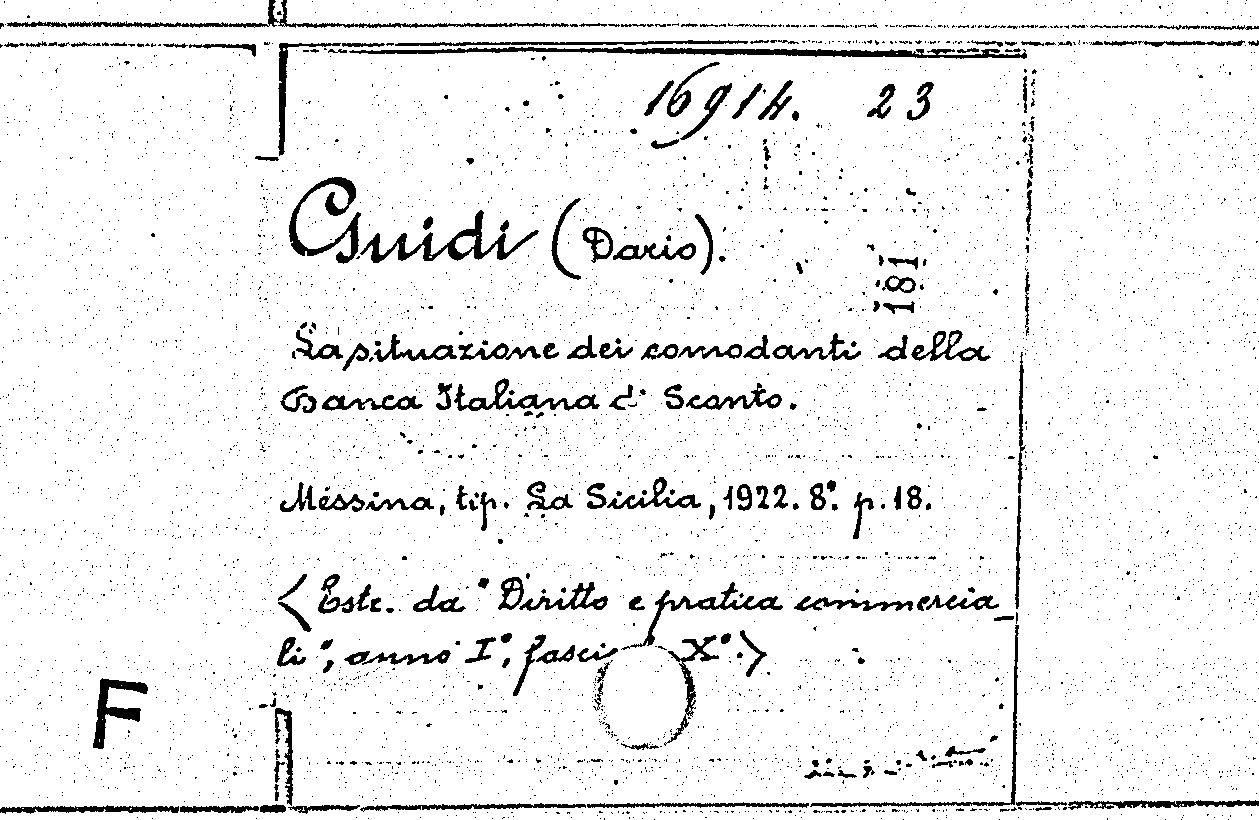 16914. 23
Guidi (Dario).
181
La situazione dei comodanti della
Banca Italiana d' Sconto.
Messina, tip. La Sicilia, 1922. 8°. p. 18.
<Estr. da "Diritto e pratica commercia
li", anno I°, X°.>
F